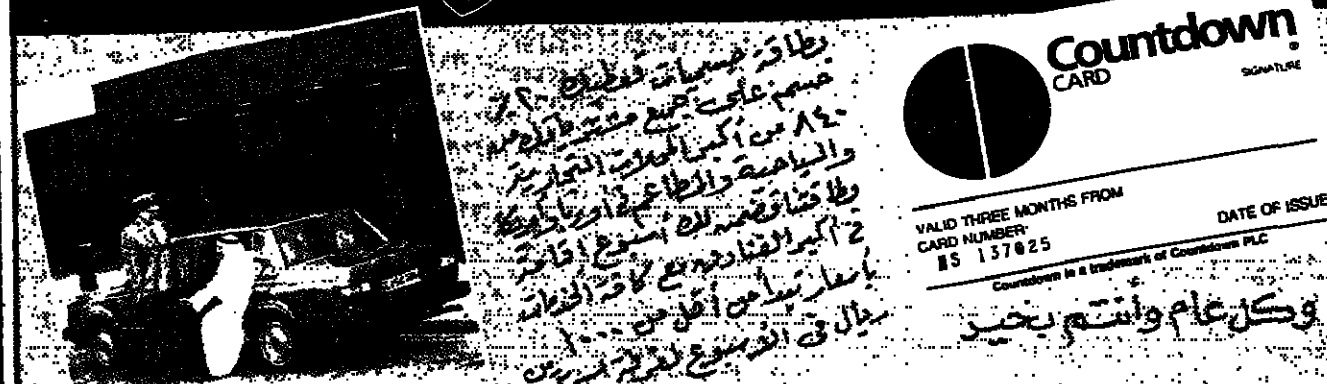 بطاقة حسميات تعطيك ٢٠٪
حسم على جميع مشترواتك من
٨٤٠ من أكبر المحلات التجارية
والسياحية والمطاعم في أوربا وأمريكا
بطاقتنا تضمن لك أسبوع إقامة
في أكبر الفنادق مع كافة الخدمات
بأسعار تبدأ من أقل من ١٠٠٠
ريال في الأسبوع لغرفة
Countdown
CARD
SIGNATURE
VALID THREE MONTHS FROM
DATE OF ISSUE
CARD NUMBER
S 157025
Countdown is a trademark of Countdown PLC
وكل عام وأنتم بخير